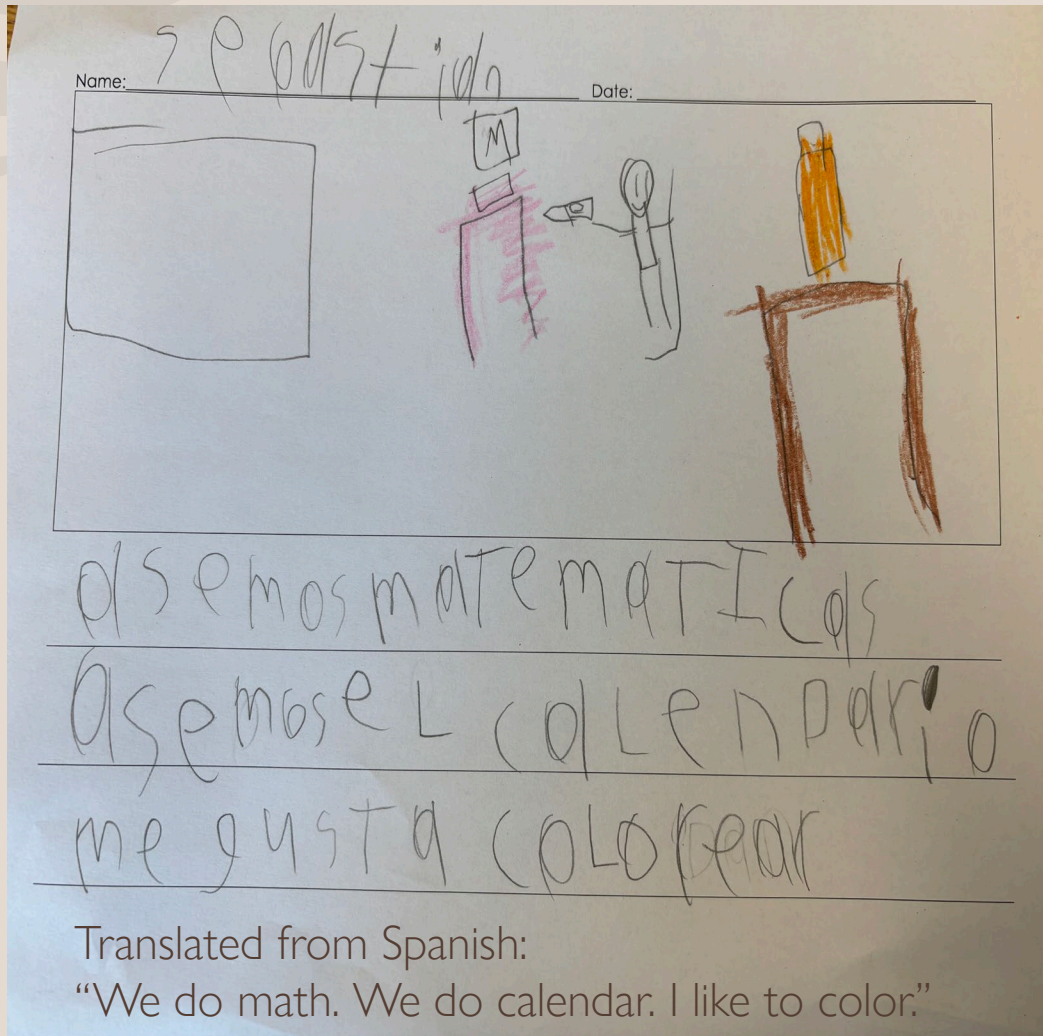 sebastian
Name: Date:
M
asemos matematicas
asemos el calendario
me gusta colorear
Translated from Spanish:
“We do math. We do calendar. I like to color.”